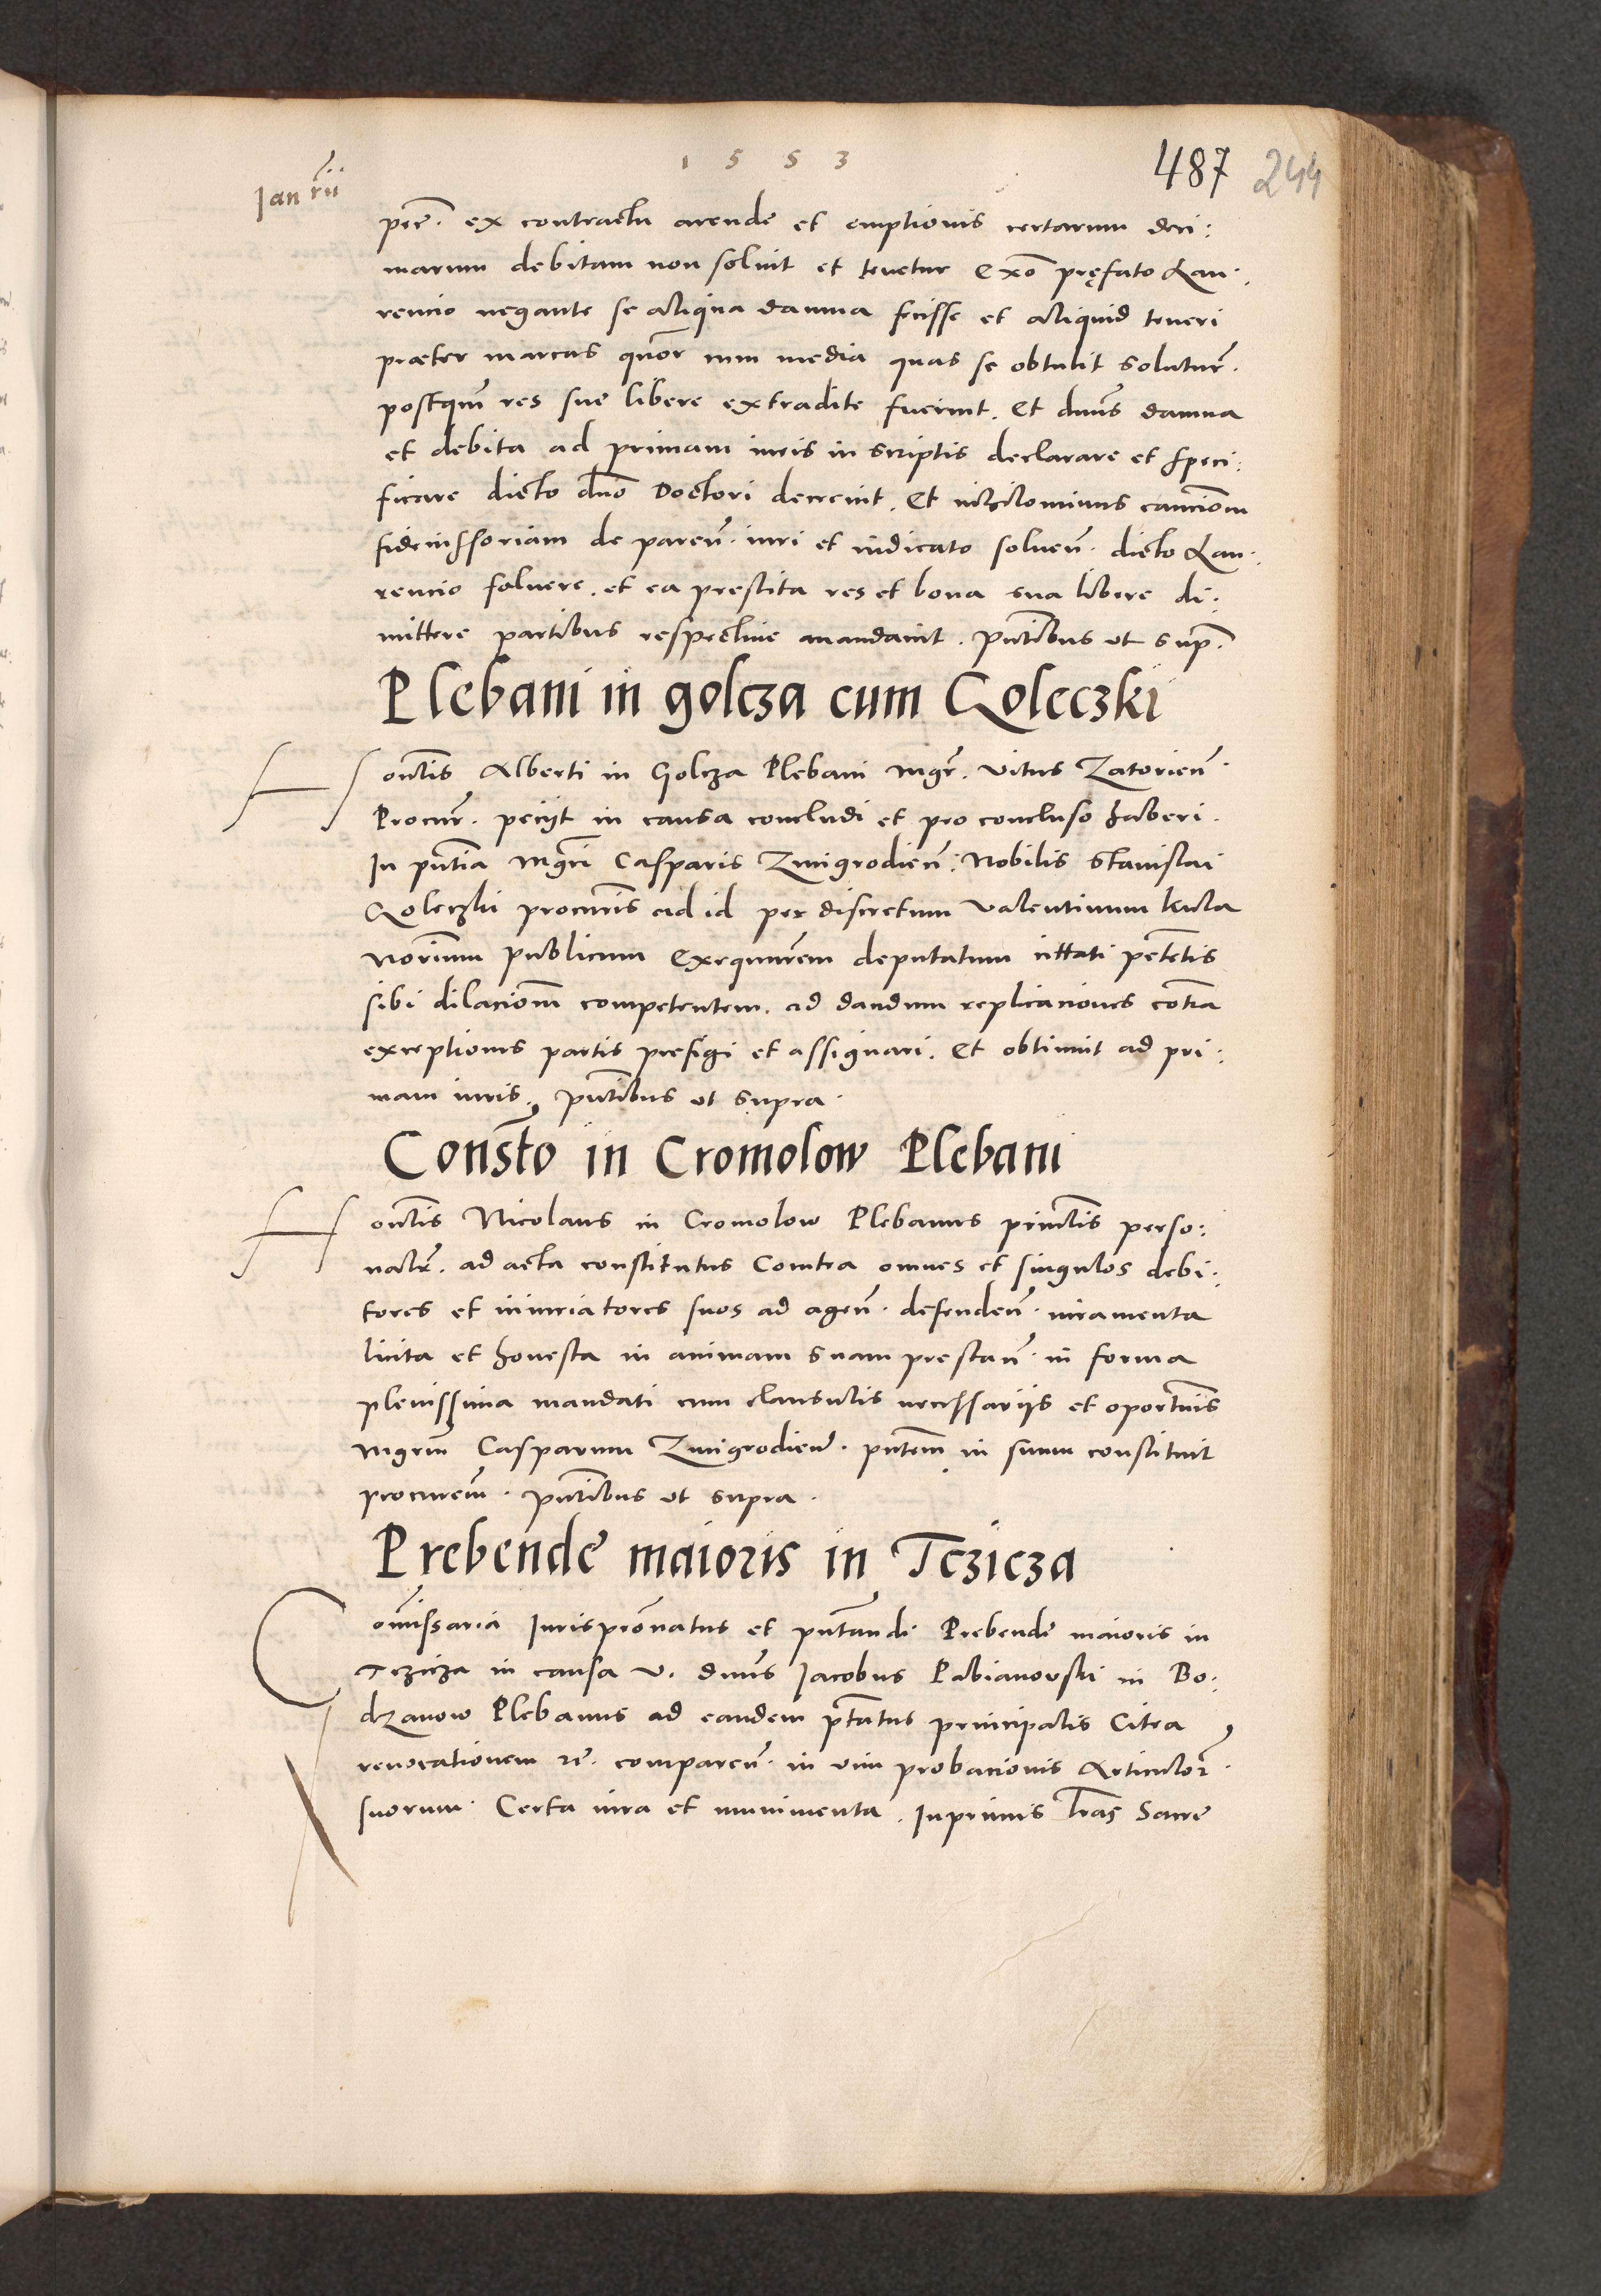 1553
487 244
Ianrii
pñe. ex contractu arende et emptionis certarum deci:
marum debitam non soluit et tenetur Exõ pręfato Lau:
rencio negante se aliqua damna fecisse et aliquid teneri
præter marcas quõr cum media quas se obtulit soluturũ.
postqm̃ res sue libere extradite fuerint. Et dnus damna
et debita ad primam iuris in scriptis declarare et speci:
ficare dicto dno Doctori decreuit. Et nihilominus caucionẽm
fideiussoriam de pareñ. iuri et iudicato solueñ. dicto Lau:
rencio soluere. et ea prestita res et bona sua libere di:
mittere partibus respectiue mandauit. Pñtibus ut supª.
Plebani in golcza cum Goleczki
Honñlis Alberti in Golcza Plebani Mgr̃. Vitus Zatorieñ.
Procur̃. peciit in causa concludi et pro concluso haberi.
In pñtia Mgr̃i Casparis Zmigrodieñ: Nobilis Stanislai
Goleczki procur̃is ad id per discretum Valentinum kula
Nor̃ium publicum Exequut̃rem deputatum cittati pet̃entis
sibi dilacionẽm competentem. ad dandum replicaciones cõtra
exceptiones partis prefigi et assignari. Et obtinuit ad pri:
mam iuris. Pñtibus ut supra.
Consto in Cromolow Plebani
Honñlis Nicolaus in Cromolow Plebanus principlis perso:
naltr̃. ad acta constitutus Contra omnes et singulos debi:
tores et iniuriatores suos ad ageñ. defendeñ. iuramenta
licita et honesta in animam suam prestañ. in forma
plenissima mandati cum clausulis necessariis et oportunis
Mgrũm Casparum Zmigrodieñ. pñtem in suum constituit
procur̃em. Pñtibus ut supra.
Prebende maioris in Tczicza
Comissaria Iurisprõnatus et pñtandi Prebende maioris in
Tczicza in causa v. dnus Iacobus Pabianovski in Bo:
dzanow Plebanus ad eandem pñtatus principalis Citra
reuocationem rẽ. compareñ. in vim probacionis Articulor̃.
suorum. Certa iura et munimenta. Inprimis lras Sacre